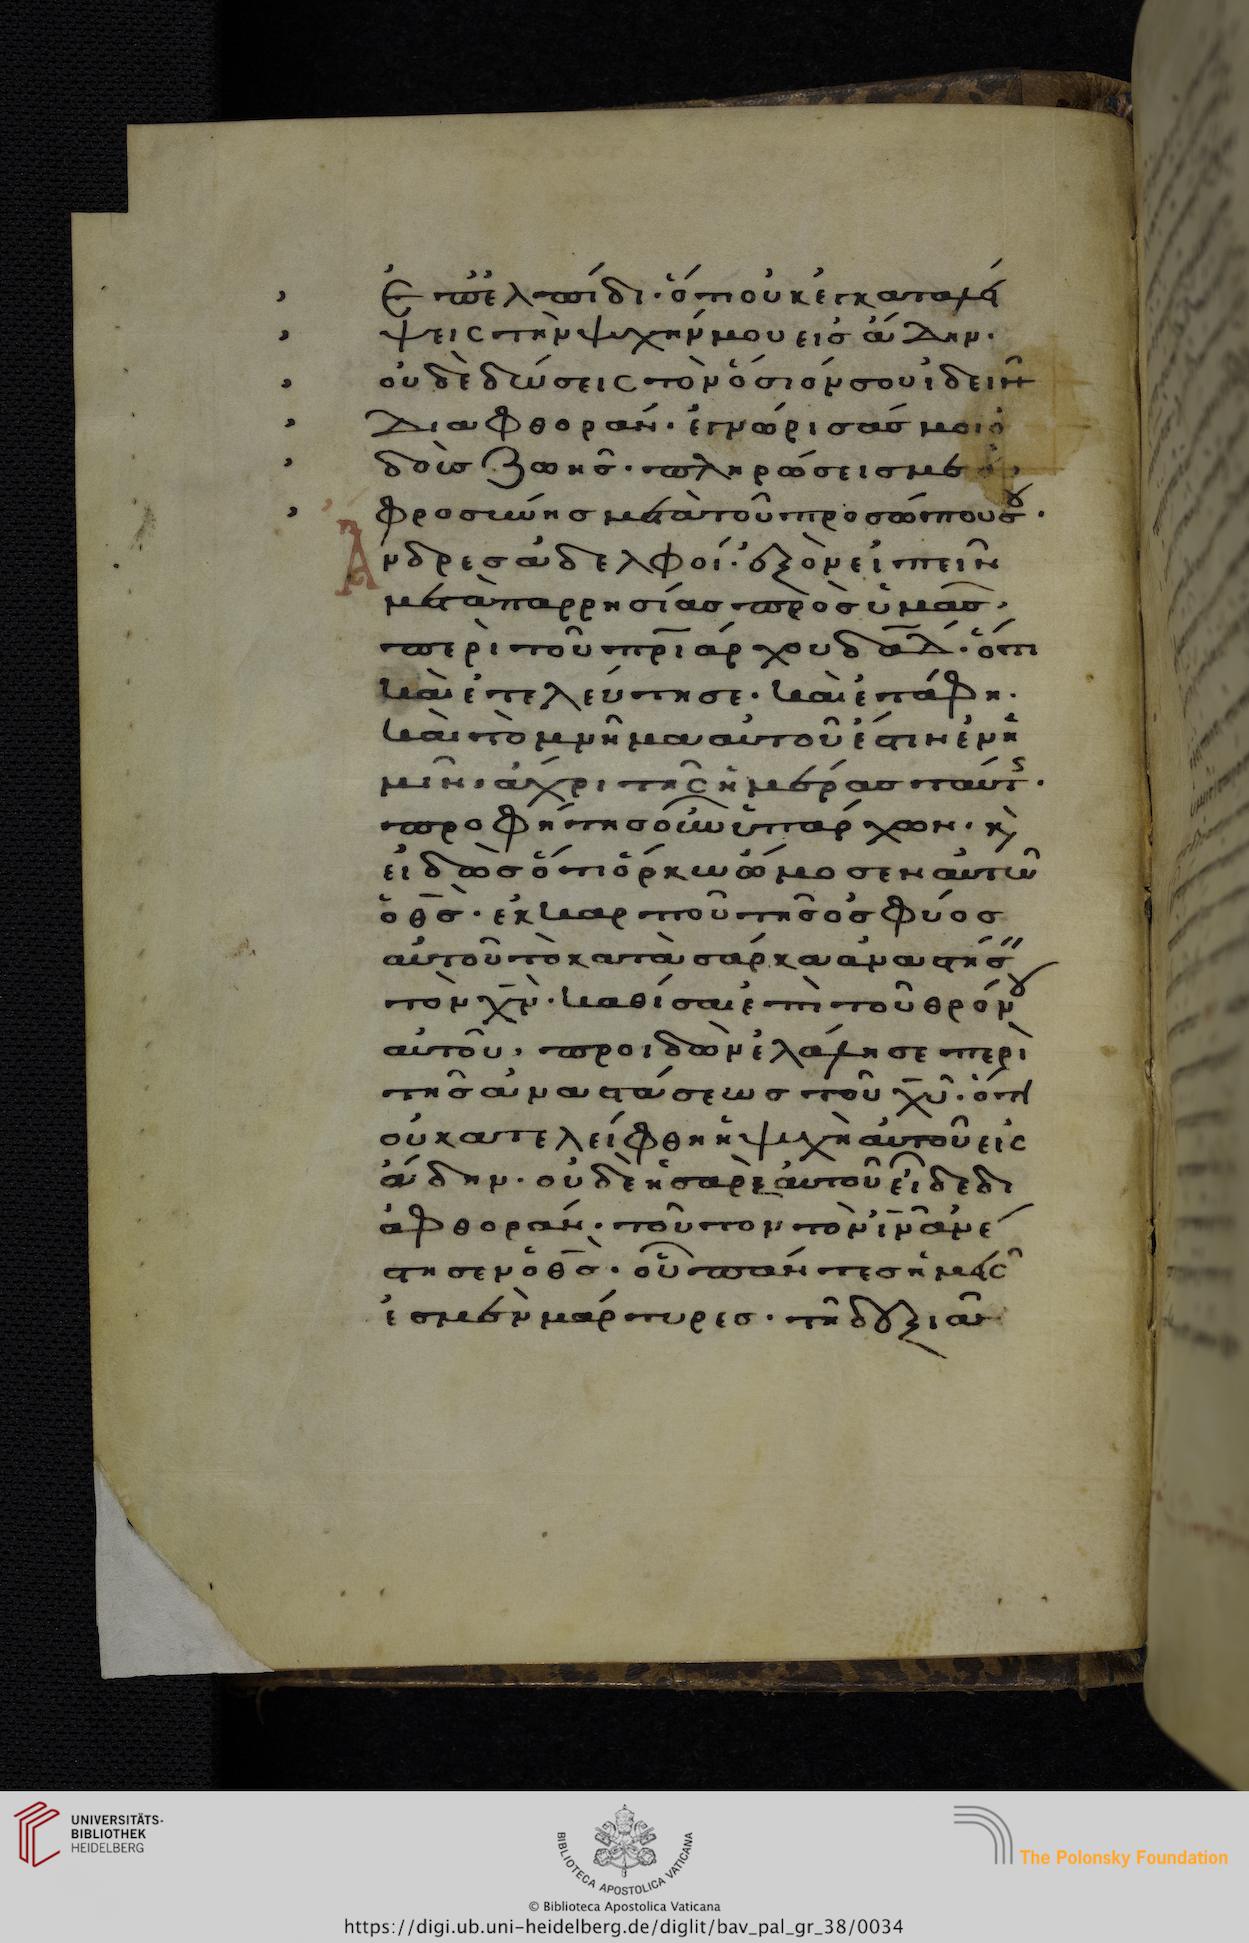 ἐπ' ἐλπίδι· ὅτι οὐκ ἐγκαταλεί
ψεις τὴν ψυχήν μου εἰς ἅδην·
οὐδὲ δώσεις τὸν ὅσιόν σου ἰδεῖν
διαφθοράν· ἐγνώρισάς μοι ὁ
δοὺς ζωῆς· πληρώσεις με εὐ
φροσύνης μετὰ τοῦ προσώπου σου·
Ἄνδρες ἀδελφοί· ἐξὸν εἰπεῖν
μετὰ παρρησίας πρὸς ὑμᾶς,
περὶ τοῦ πριάρχου δαδ· ὅτι
καὶ ἐτελεύτησε· καὶ ἐτάφη·
καὶ τὸ μνῆμα αὐτοῦ ἔστιν ἐν ἡ
μῖν, ἄχρι τῆς ἡμέρας ταύτης·
προφήτης οὖν ὑπάρχων· κὶ
εἰδὼς ὅτι ὅρκω ὤμοσεν αὐτῶ
ὁ θς· ἐκ καρποῦ τῆς ὀσφύος
αὐτοῦ τὸ κατὰ σάρκα ἀναστήσειν
τὸν χν· καθίσαι ἐπὶ τοῦ θρόνου
αὐτοῦ, προιδὼν ἐλάλησε περὶ
τῆς ἀναστάσεως τοῦ χυ· ὅτι
οὐ κατελείφθη ἡ ψυχὴ αὐτοῦ εἰς
ἅδην· οὐδὲ ἡ σὰρξ αὐτοῦ εἶδε δι
αφθοράν· τοῦτον τὸν ιν ἀνέ
στησεν ὁ θς· οὗ πάντες ἡμεῖς
ἐσμὲν μάρτυρες· τῆ δεξιᾶ
UNIVERSITÄTS-
BIBLIOTHEK
HEIDELBERG
BIBLIOTECA APOSTOLICA VATICANA
The Polonsky Foundation
© Biblioteca Apostolica Vaticana
https://digi.ub.uni-heidelberg.de/diglit/bav_pal_gr_38/0034